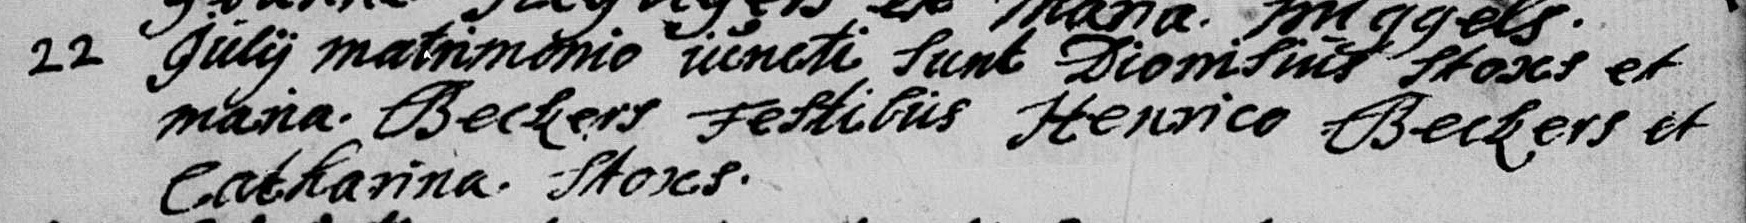 et Maria.
22 Julij matrimonio iuncti sunt Dionisius Stoxs et
maria. Beckers Testibus Henrico Beckers et
Catharina. Stoxs.